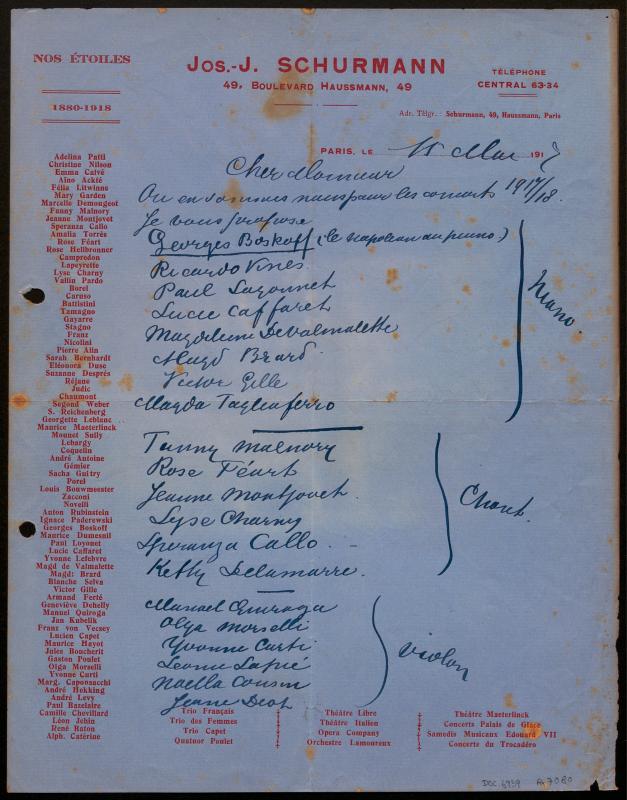 NOS ÉTOILES
1880-1918
JOS.-J. SCHURMANN
49, BOULEVARD HAUSSMANN, 49
TÉLÉPHONE
CENTRAL 63-34
Adr. Télgr.: Schurmann, 49, Haussmann, Paris
PARIS, LE 15 Mai 1917
Cher Monsieur
Ou en sommes nous pour les concerts 1917/18.
Je vous propose
Georges Boskoff (le Napoleon au piano)
Ricardo Vines
Paul Loyonnet
Lucie Caffaret
Magdeleine De Valmalette
Magd Brard
Victor Gille
Magda Tagliaferro
Piano.
Fanny Malnory
Rose Féart
Jeanne Montjovet
Lyse Charny
Speranza Callo
Ketty Delamarre.
Chant.
Manuel Quiroga
Olga Morselli
Yvonne Curti
Leonie Lapié
Noella Cousin
Jeane Diot
Violon
Adelina Patti
Christine Nilson
Emma Calvé
Aïno Ackté
Félia Litwinne
Mary Garden
Marcelle Demongeot
Fanny Malnory
Jeanne Montjovet
Speranza Callo
Amalia Torrès
Rose Féart
Rose Heilbronner
Campredon
Lapeyrette
Lyse Charny
Vallin Pardo
Borel
Caruso
Battistini
Tamagno
Gayarre
Stagno
Franz
Nicolini
Pierre Alin
Sarah Bernhardt
Eléonora Duse
Suzanne Desprès
Réjane
Judic
Chaumont
Segond Weber
S. Reichenberg
Georgette Leblanc
Maurice Maeterlinck
Mounet Sully
Lebargy
Coquelin
André Antoine
Gémier
Sacha Guitry
Porel
Louis Bouwmeester
Zacconi
Novelli
Anton Rubinstein
Ignace Paderewski
Georges Boskoff
Maurice Dumesnil
Paul Loyonet
Lucie Caffaret
Yvonne Lefebvre
Magd de Valmalette
Magd: Brard
Blanche Selva
Victor Gille
Armand Ferté
Geneviève Dehelly
Manuel Quiroga
Jan Kubelik
Franz von Vecsey
Lucien Capet
Maurice Hayot
Jules Boucherit
Gaston Poulet
Olga Morselli
Yvonne Curti
Marg. Caponsacchi
André Hekking
André Levy
Paul Bazelaire
Camille Chevillard
Léon Jehin
René Baton
Alph. Catérine
Trio Français
Trio des Femmes
Trio Capet
Quatuor Poulet
Théâtre Libre
Théâtre Italien
Opera Company
Orchestre Lamoureux
Théâtre Maeterlinck
Concerts Palais de Glace
Samedis Musicaux Edouard VII
Concerts du Trocadéro
DOC. 6939
A-7080